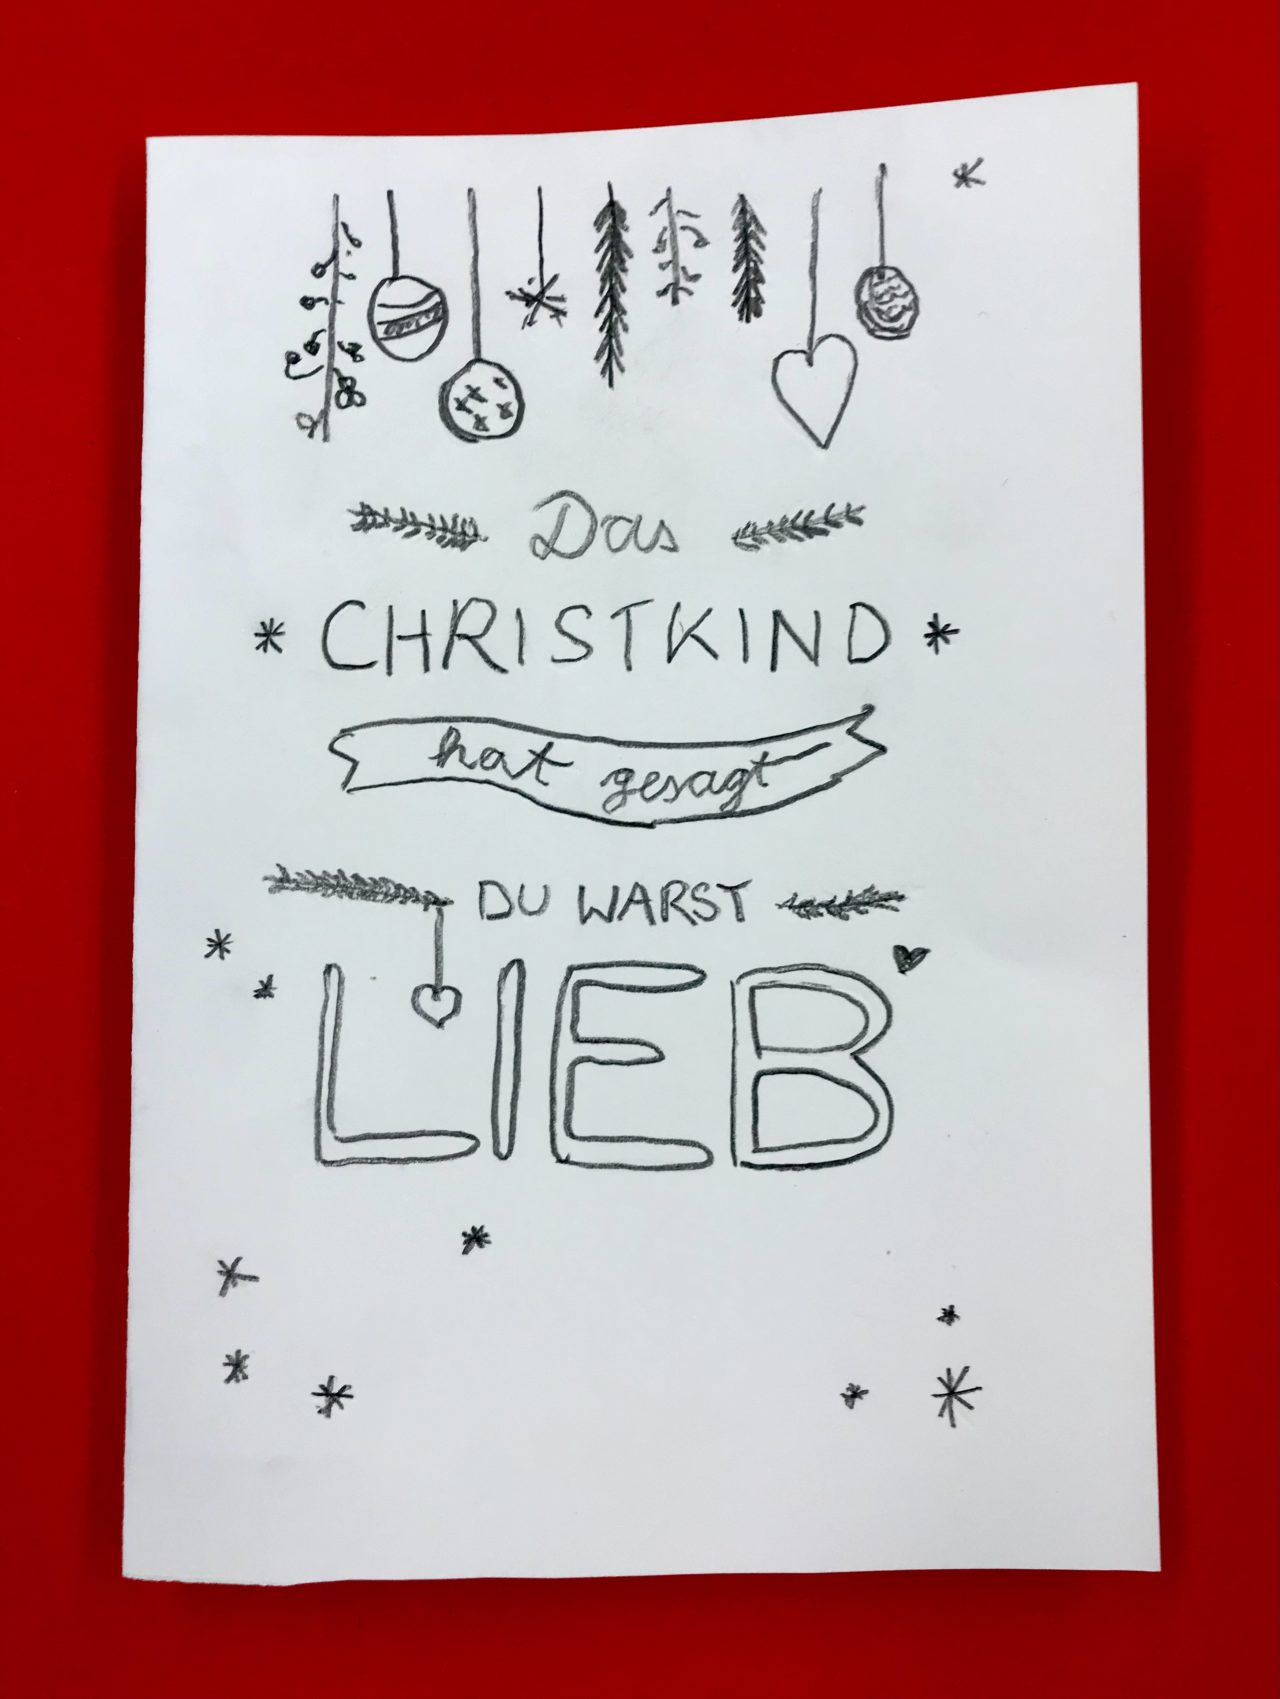 Das
CHRISTKIND
hat gesagt
DU WARST
LIEB